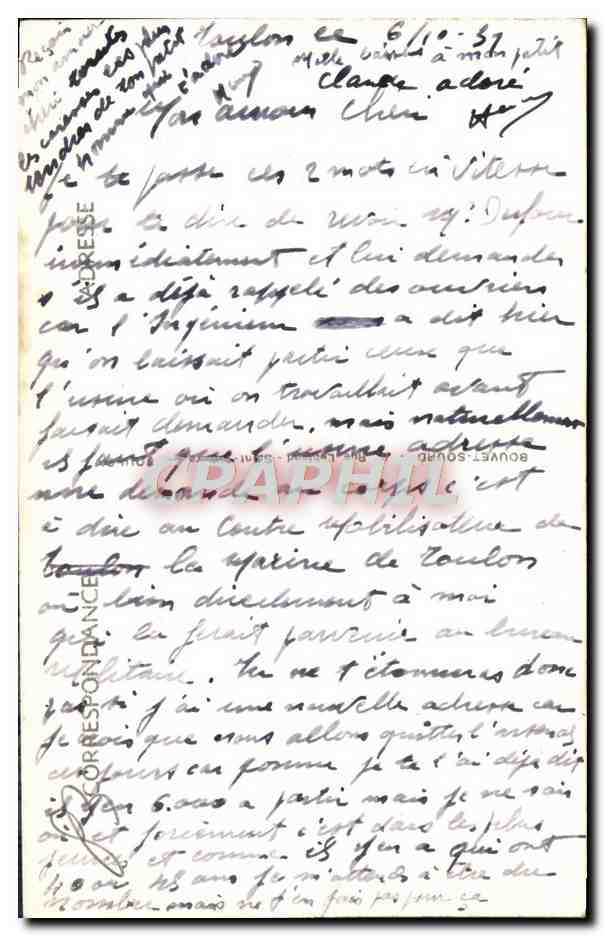 Toulon ce 6/10-39
Reçois
mon amour
chéri toutes
les caresses les plus
tendres de ton petit
homme que t'adore
Mille baisers à mon petit
Claude adoré
Mon amour Cheri
Je te passe ces 2 mots en vitesse
pour te dire de revoir Mr Dufour
immédiatement et lui demander
s'il a déjà rappelé des ouvriers
car l'Ingénieur a dit hier
qu'on laissait partir ceux que
l'usine où on travaillait avant
faisait demander, mais naturellement
il faut que l'usine adresse
une demande au corps c'est
à dire au Centre Mobilisateur de
Toulon la Marine de Toulon
ou bien directement à moi
qui la ferait parvenir au bureau
Militaire. Tu ne t'étonneras donc
pas si j'ai une nouvelle adresse car
je crois que nous allons quitter l'arsenal
ces jours car comme je te l'ai déjà dit
il y en 6.000 a partir mais je ne sais
où et forcément c'est dans les plus
jeunes et comme il y en a qui ont
40 ou 45 ans je m'attends à être du
nombre mais ne t'en fais pas pour ça
ADRESSE
CORRESPONDANCE
BOUVET-SOURD
CPAPHIL